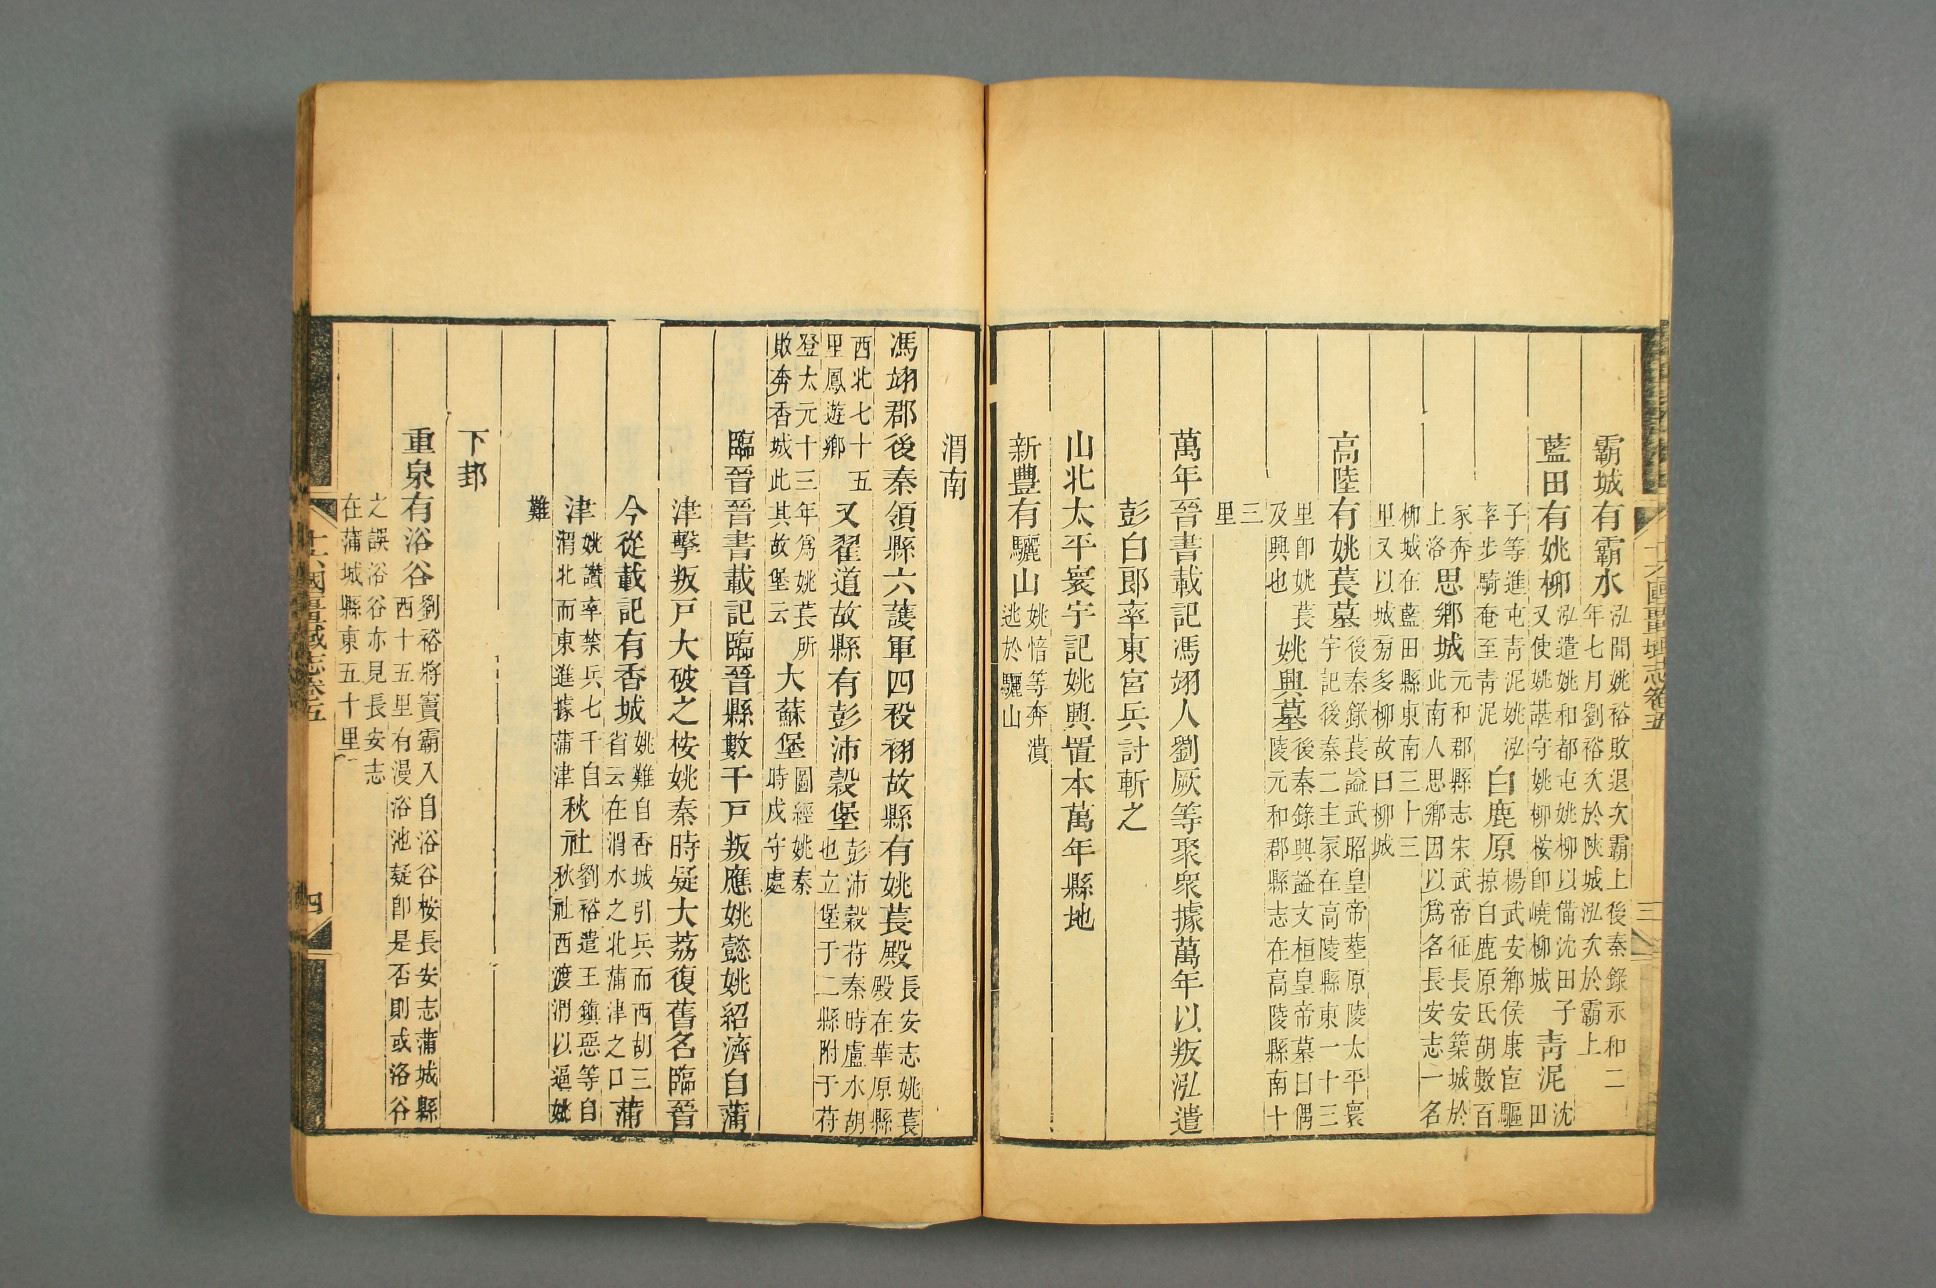 霸城有霸水泓聞姚裕敗退次霸上後秦錄永和二
年七月劉裕次於陝城泓次於霸上
藍田有姚柳泓遣姚和都屯姚柳以備沈田子
又使姚諶守姚柳桉卽嶢柳城青泥沈田
子等進屯青泥姚泓
率步騎奄至青泥白鹿原楊武安鄉侯康宦驅
掠白鹿原氐胡數百
家奔
上洛思鄉城元和郡縣志宋武帝征長安築城於
此南人思鄉因以爲名長安志一名
柳城在藍田縣東南三十三
里又以城㫄多柳故曰柳城
高陸有姚萇墓後秦錄萇謚武昭皇帝葬原陵太平寰
宇記後秦二主冢在高陵縣東一十三
里卽姚萇
及興也姚興墓後秦錄興謚文桓皇帝墓曰偶
陵元和郡縣志在高陵縣南十
三
里
萬年晉書載記馮翊人劉厥等聚衆據萬年以叛泓遣
彭白郎率東宮兵討斬之
山北太平寰宇記姚興置本萬年縣地
新豐有驪山姚愔等奔潰
逃於驪山
十六國疆域志卷五
三
渭南
馮翊郡後秦領縣六護軍四祋祤故縣有姚萇殿長安志姚萇
殿在華原縣
西北七十五
里鳳遊鄉又翟道故縣有彭沛穀堡彭沛穀苻秦時盧水胡
也立堡于二縣附于苻
登太元十三年爲姚萇所
敗奔香城此其故堡云大蘇堡圖經姚秦
時戍守處
臨晉晉書載記臨晉縣數千戸叛應姚懿姚紹濟自蒲
津擊叛戸大破之桉姚秦時疑大荔復舊名臨晉
今從載記有香城姚難自香城引兵而西胡三
省云在渭水之北蒲津之口蒲
津姚讚率禁兵七千自
渭北而東進據蒲津秋社劉裕遣王鎮惡等自
秋社西渡渭以逼姚
難
下邽
重泉有浴谷劉裕將竇霸入自浴谷桉長安志蒲城縣
西十五里有漫浴池疑卽是否則或洛谷
之誤浴谷亦見長安志
在蒲城縣東五十里
十六國疆域志卷五
四